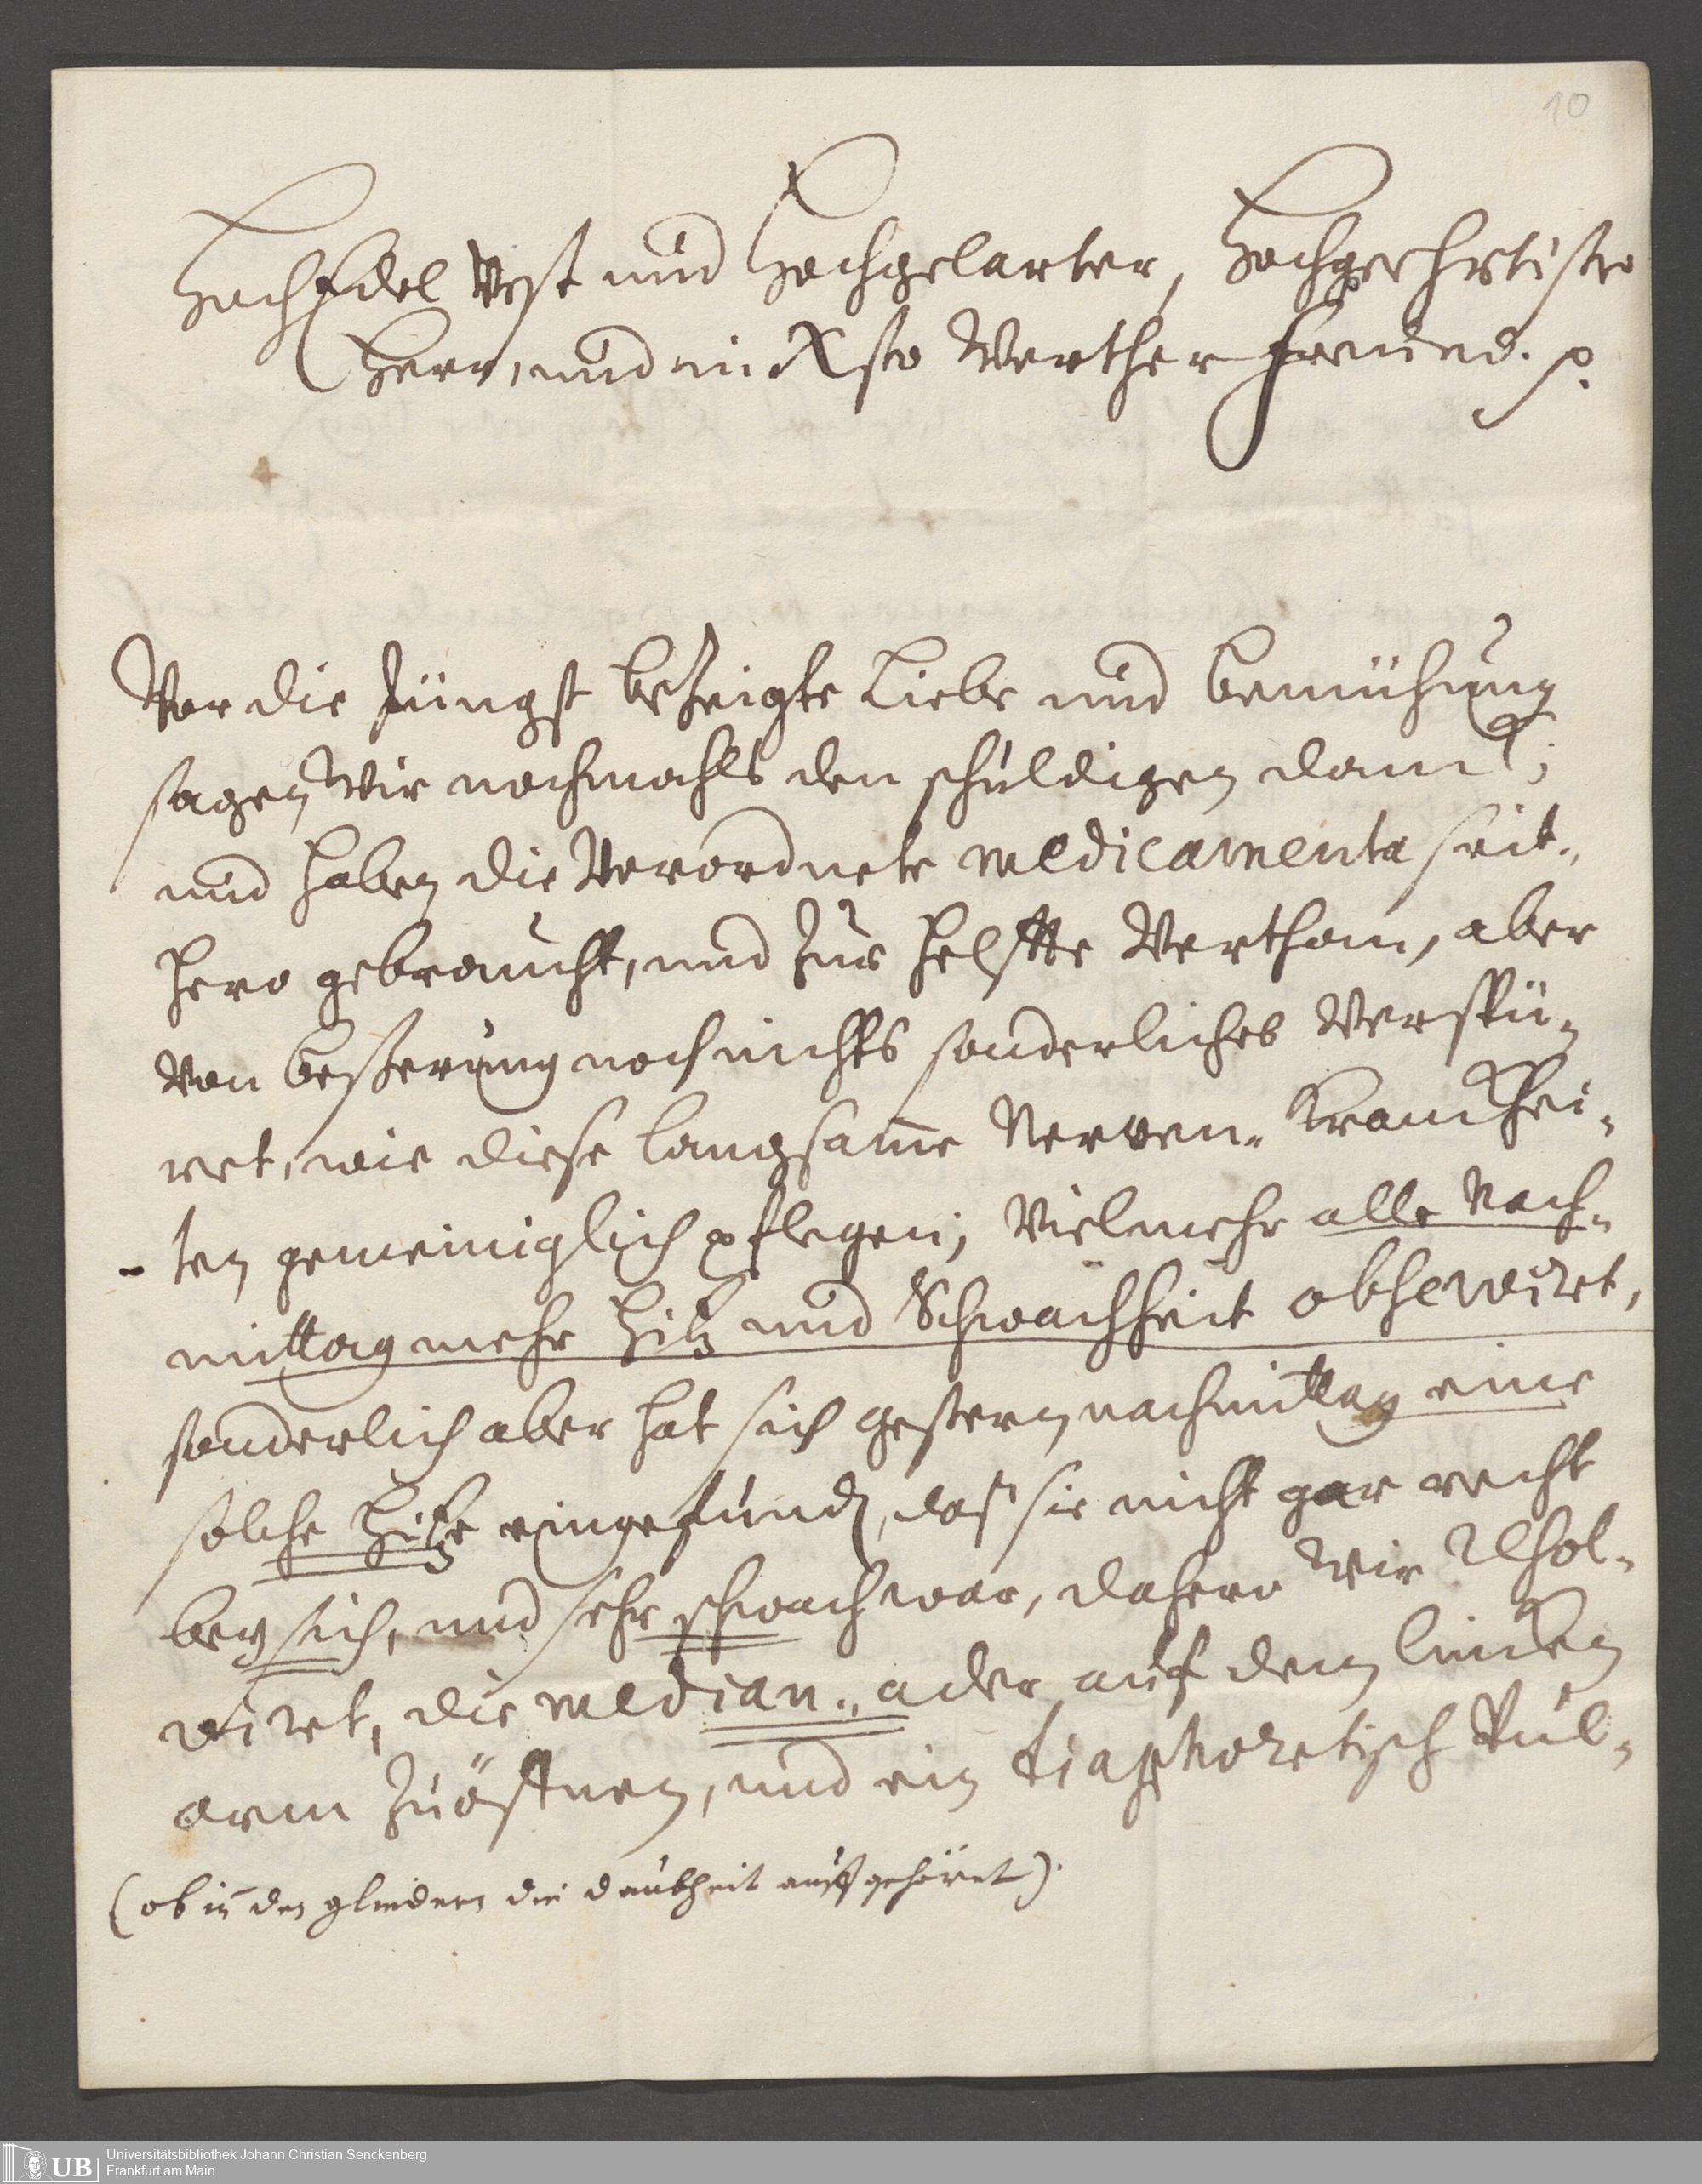 10
HochEdel Vest und Hochgelarter, Hochgeehrtister
Herr, und in Xsto Werther Freund. p.
Vor die jüngst bezeigte Liebe und bemühung
sagen Wir nochmahls den schuldigen danck;
und haben die Verordnete medicamenta seit-
hero gebraucht, und zur helffte Verthan, aber
von beßerung noch nichts sonderliches Verspü-
ret, wie diese langsame Nerven- Kranckhei-
ten gemeiniglich pflegen; Vielmehr alle Nach-
mittag mehr Hitz und Schwachheit observiret,
sonderlich aber hat sich gestern nachmittag eine
solche Hitze eingefunden, daß sie nicht gar recht
bey sich, und sehr schwach war, dahero Wir resol-
viret, die median- ader auf dem lincken
arm zu öffnen, und ein diaphoretisch Pul-
(ob in den gliedern die daubheit auffgehöret).
UB
Universitätsbibliothek Johann Christian Senckenberg
Frankfurt am Main